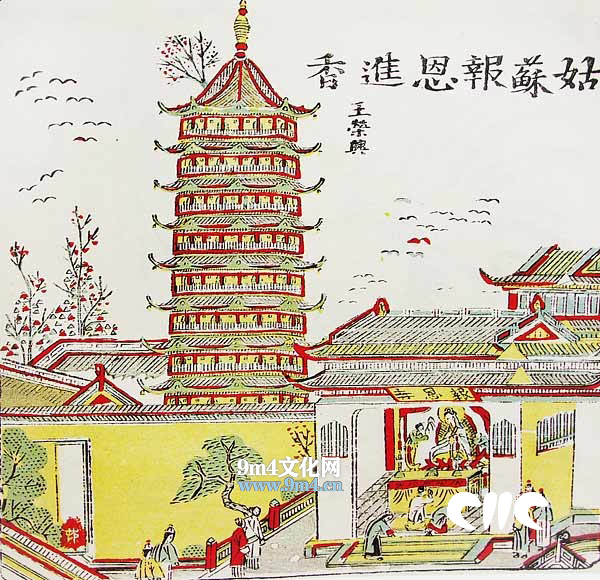 姑蘇報恩進香
王榮興
9m4文化网
www.9m4.cn